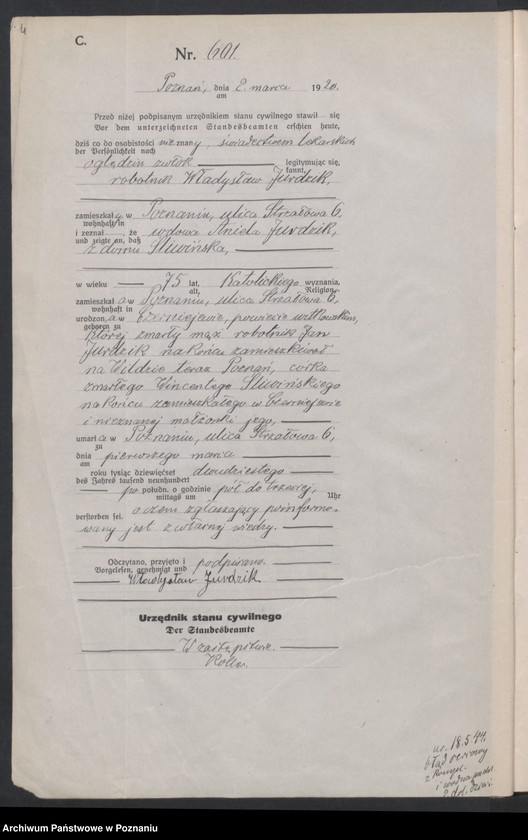 4
C.
Nr. 601.
Poznań, dnia 2. marca 1920.
am
Przed niżej podpisanym urzędnikiem stanu cywilnego stawił się
Vor dem unterzeichneten Standesbeamten erschien heute,
dziś co do osobistości nieznany, świadectwem lekarskich
der Persönlichkeit nach
oględzin zwłok legitymując się,
kannt,
robotnik Władysław Jurdzik,
zamieszkały w Poznaniu, ulica Strzałowa 6,
wohnhaft in
i zeznał, że wdowa Aniela Jurdzik,
und zeigte an, daß
z domu Śliwińska,
w wieku 75 lat, Katolickiego wyznania,
alt, Religion,
zamieszkała w Poznaniu, ulica Strzałowa 6,
wohnhaft in
urodzona w Czerniejewie, powiecie witkowskim,
geboren zu
której zmarły mąż robotnik Jan
Jurdzik na końcu zamieszkiwał
na Wildzie teraz Poznań, córka
zmarłego Wincentego Śliwińskiego
na końcu zamieszkałego w Czerniejewie
i nieznanej małżonki jego,
umarła w Poznaniu, ulica Strzałowa 6,
zu
dnia pierwszego marca
am
roku tysiąc dziewięćset dwudziestego
des Jahres tausend neunhundert
po połudn. o godzinie pół do trzeciej,
mittags um Uhr
verstorben sei. o czem zgłaszający poinformo-
wany jest z własnej wiedzy.
Odczytano, przyjęto i podpisano.
Vorgelesen, genehmigt und
Władysław Jurdzik
Urzędnik stanu cywilnego
Der Standesbeamte
W zastępstwie.
ur. 18.5.44.
Archiwum Państwowe w Poznaniu